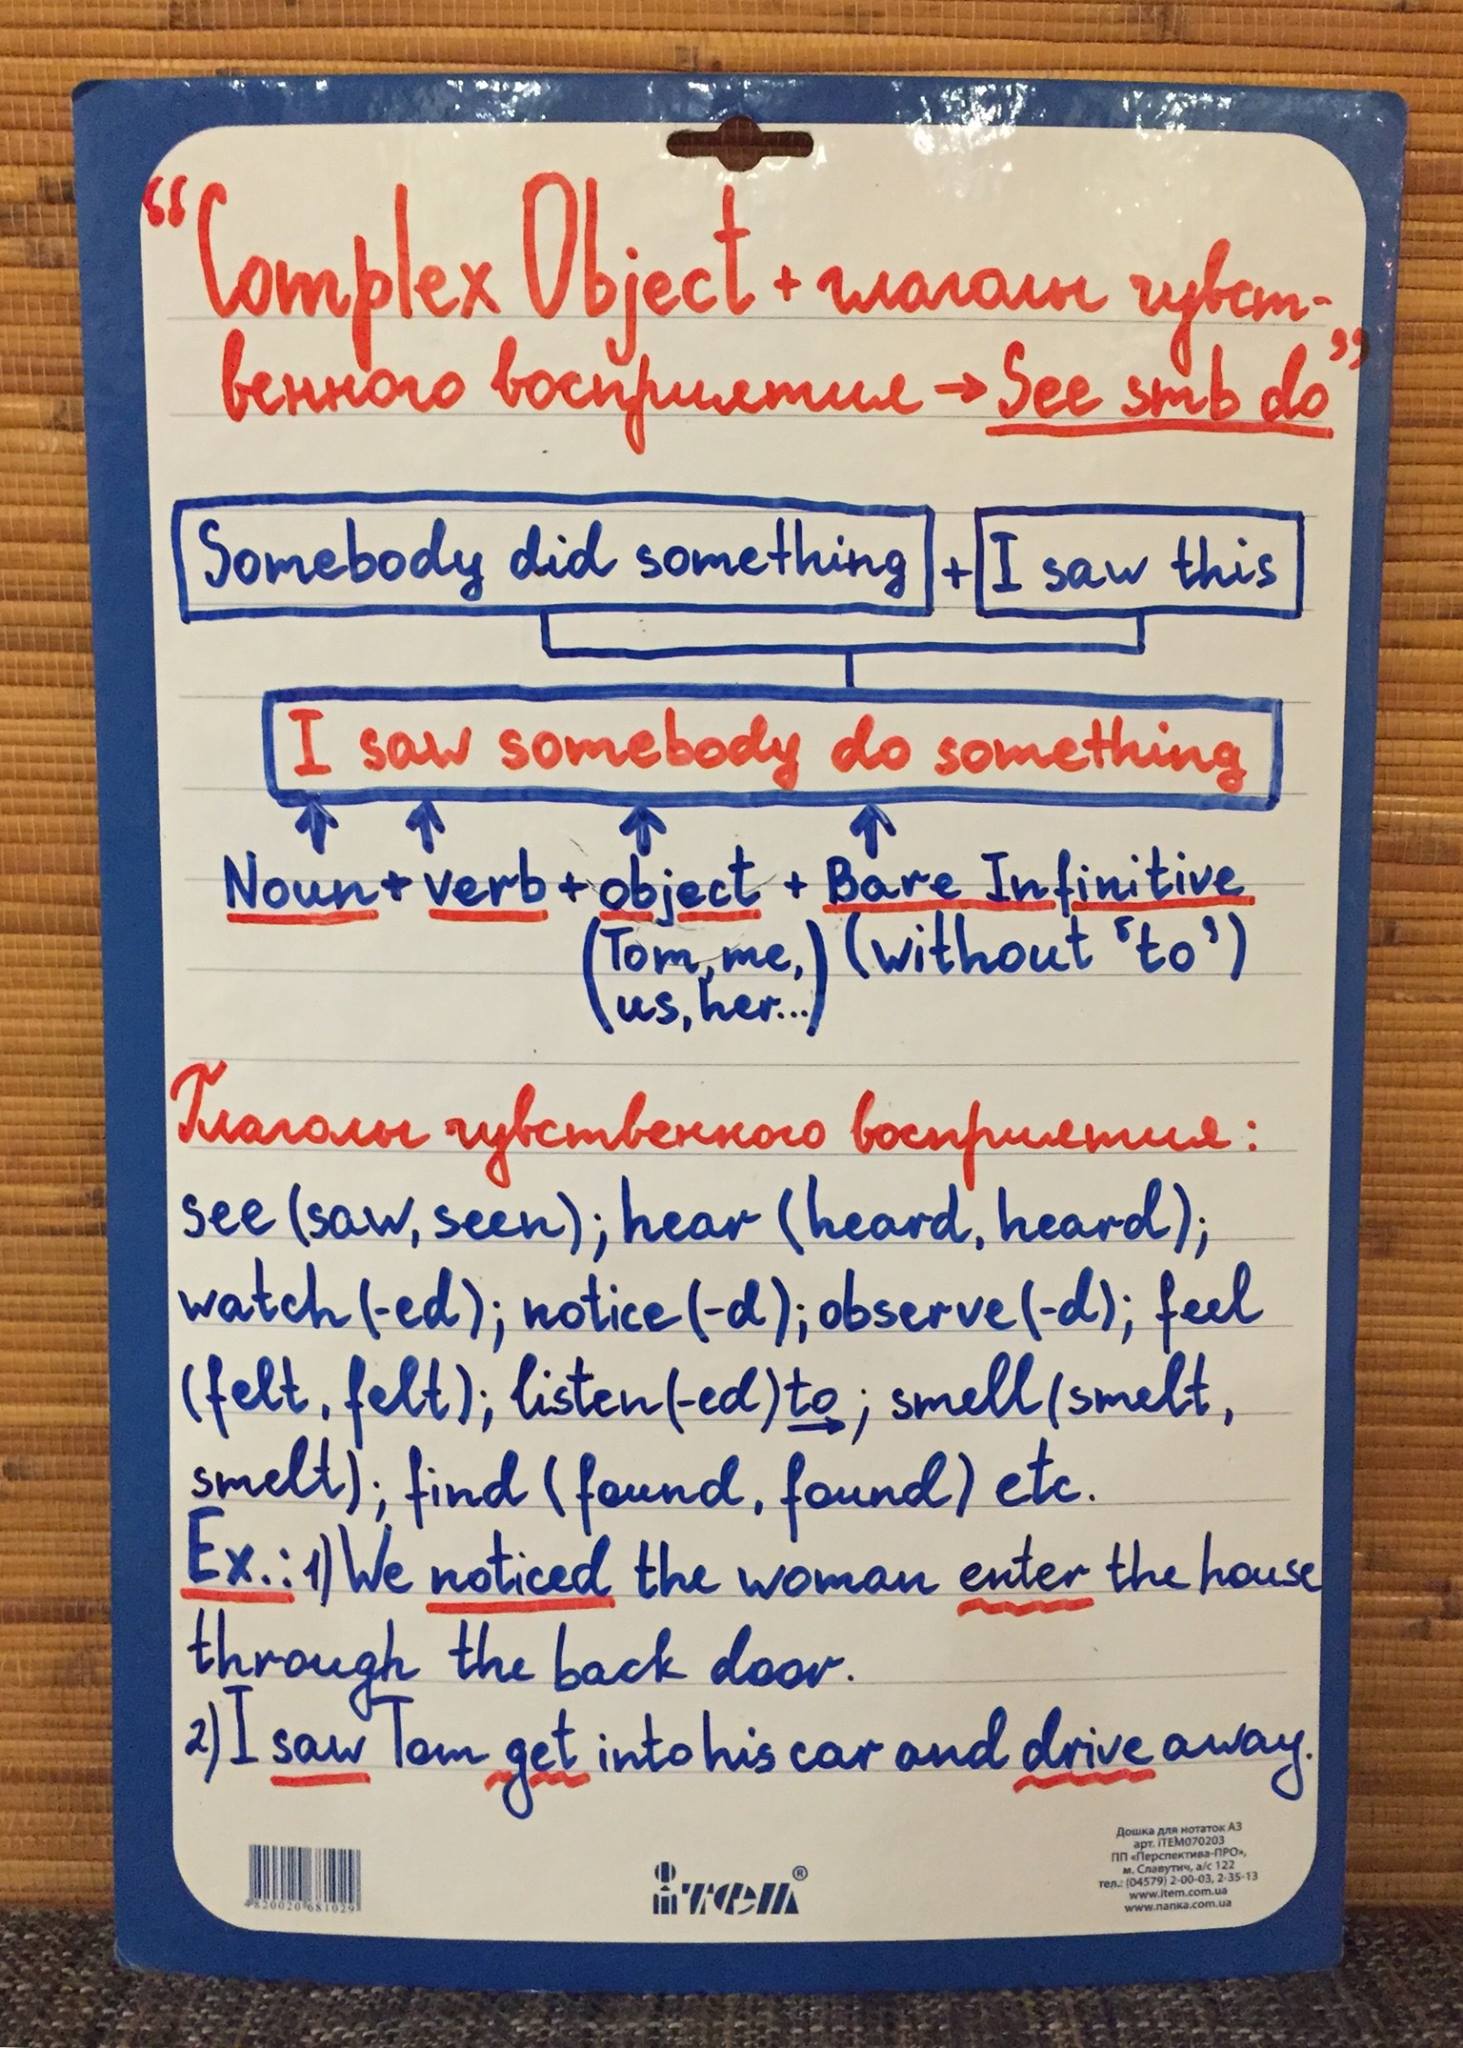 “Complex Object + глаголы чувст-
венного восприятия → See smb do”
Somebody did something + I saw this
I saw somebody do something
Noun + verb + object + Bare Infinitive
(Tom, me, us, her...) (without ‘to’)
Глаголы чувственного восприятия:
see (saw, seen); hear (heard, heard);
watch (-ed); notice (-d); observe (-d); feel
(felt, felt); listen (-ed) to; smell (smelt,
smelt); find (found, found) etc.
Ex.: 1) We noticed the woman enter the house
through the back door.
2) I saw Tom get into his car and drive away.
4820020681029
iтем®
Дошка для нотаток А3
арт. iTEM070203
ПП «Перспектива-ПРО»,
м. Славутич, а/с 122
тел.: (04579) 2-00-03, 2-35-13
www.item.com.ua
www.папка.com.ua